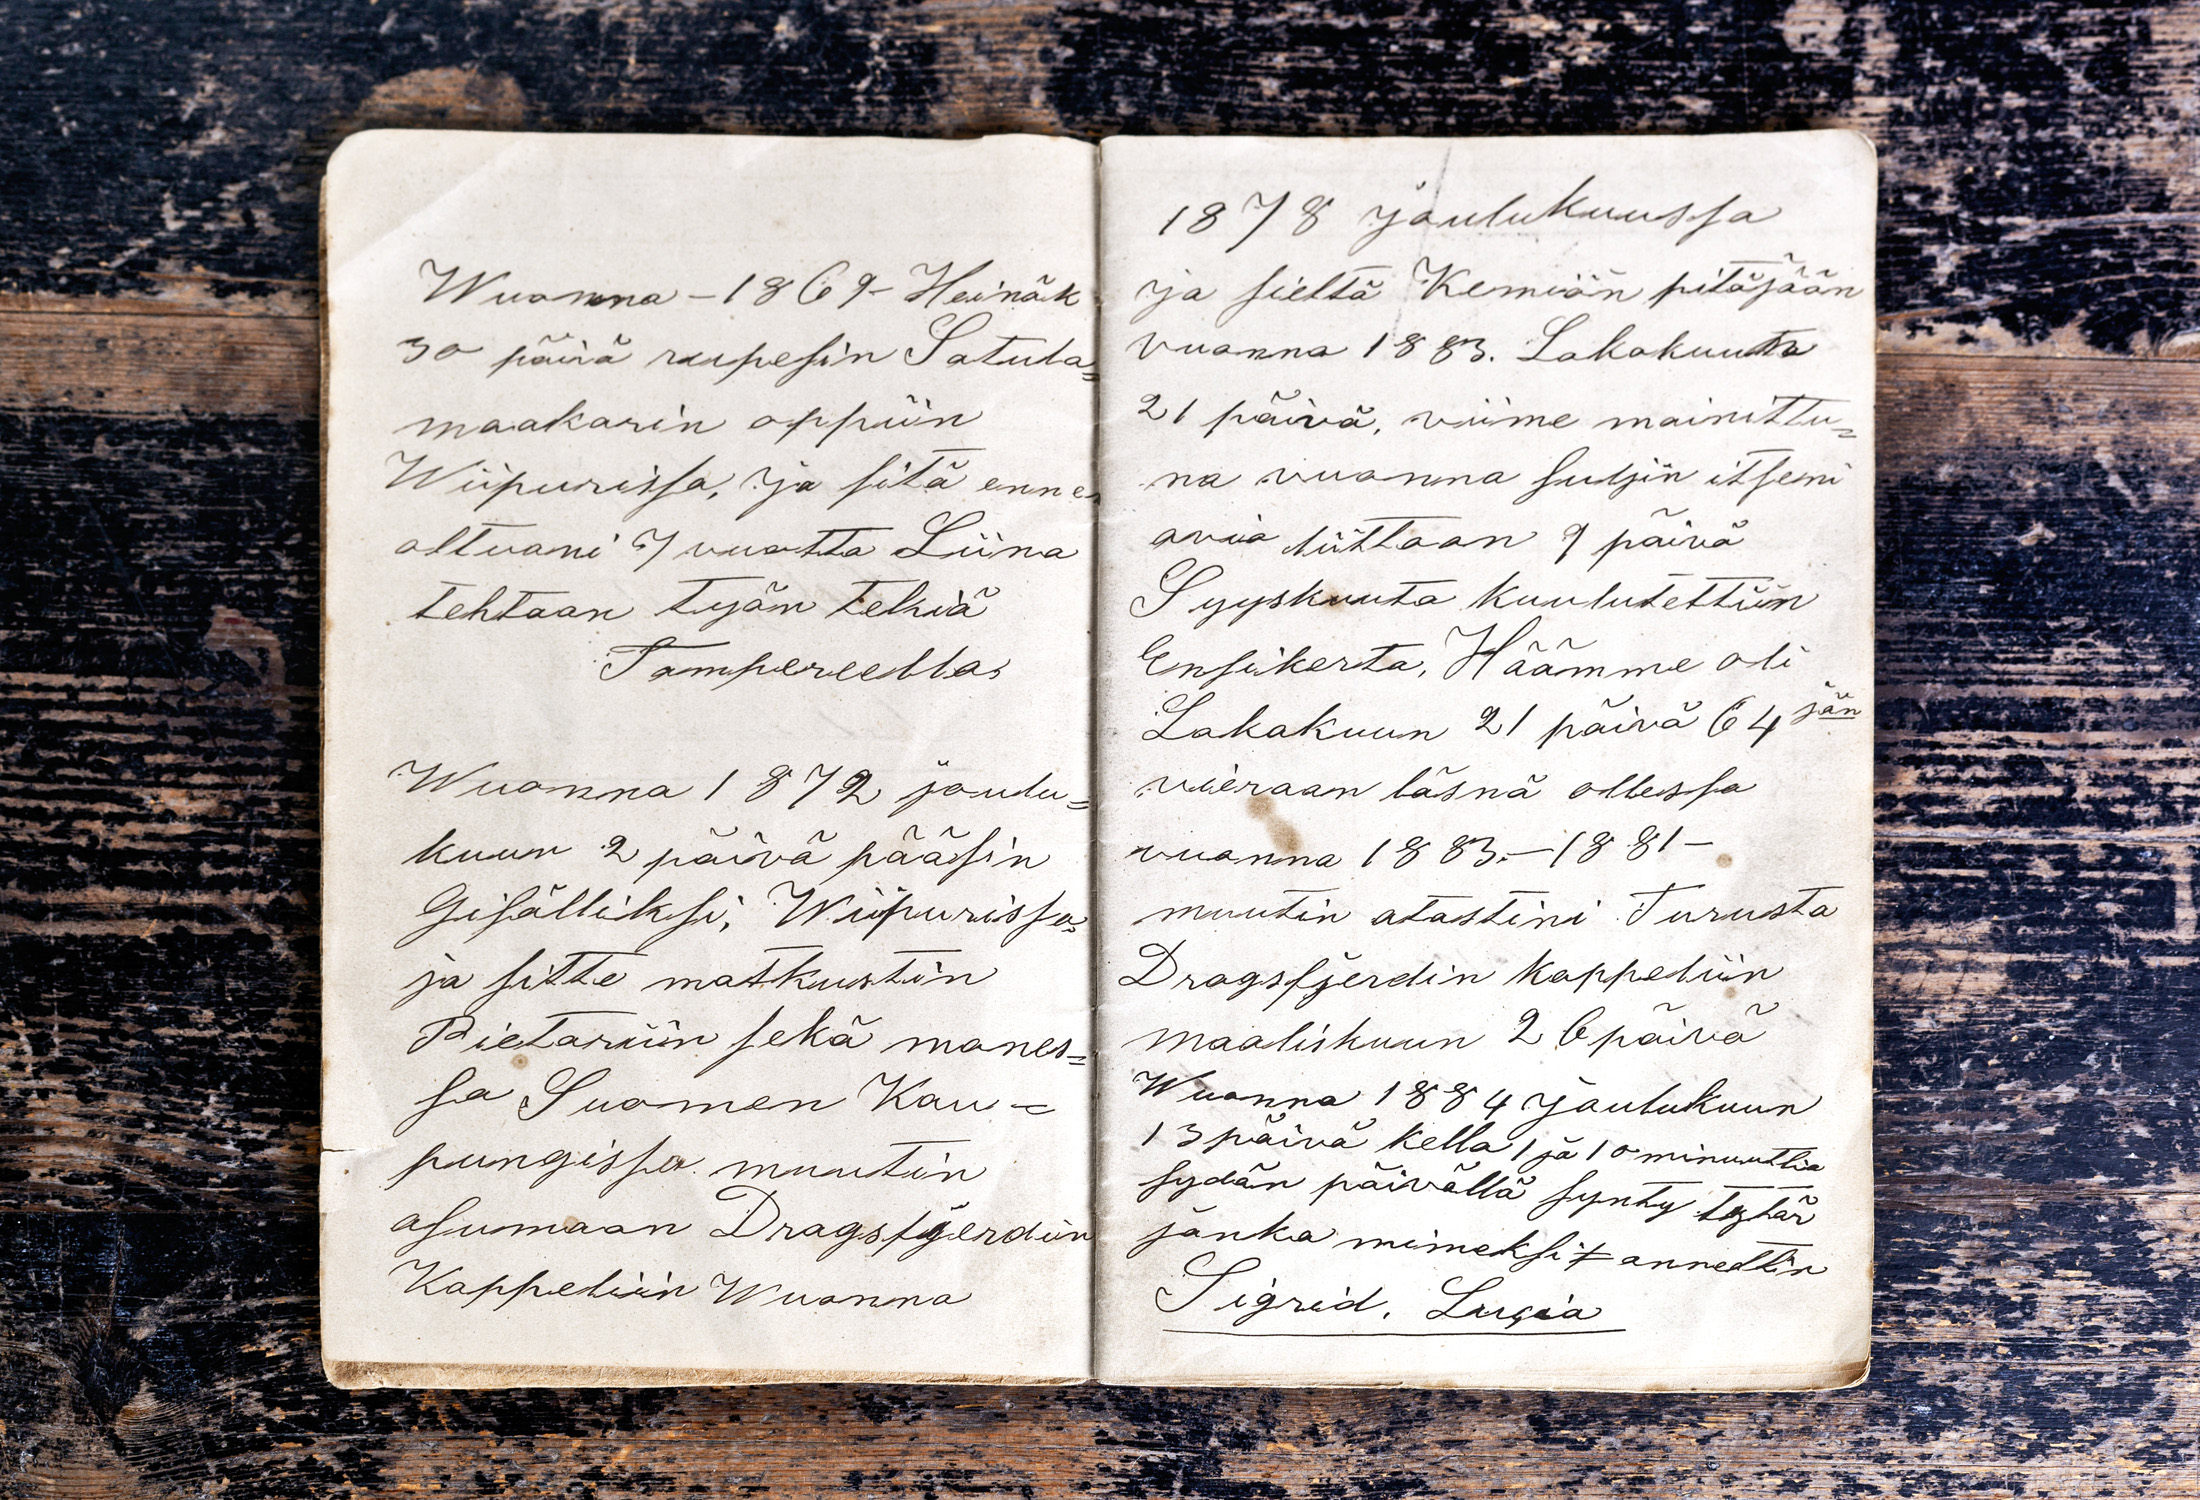 Wuonna – 1869 – Heinäk
30 päivä rupesin Satula=
maakarin oppiin
Wiipurissa, ja sitä ennen
oltuani 7 vuotta Liina
tehtaan työn tekiä
Tampereella,
Wuonna 1872 joulu=
kuun 2 päivä pääsin
Gisälliksi, Wiipurissa,
ja sitte matkustin
Pietariin sekä mones=
sa Suomen Kau=
pungissa muutin
asumaan Dragsfjerdiin
Kappeliin Wuonna
1878 joulukuussa
ja sieltä Kemiön pitäjään
vuonna 1883. Lokakuuta
21 päivä, viime mainittu=
na vuonna suljin itseni
avio liittoon 9 päivä
Syyskuuta kuulutettiin
Ensikerta, Häämme oli
Lokakuun 21 päivä 64 jän
vieraan läsnä ollessa
vuonna 1883. – 1881 –
muutin atastini Turusta
Dragsfjerdin kappeliin
maaliskuun 26 päivä
Wuonna 1884 joulukuun
13 päivä kello 1 ja 10 minuuttia
sydän päivällä synty tytär
jonka nimeksi annettiin
Sigrid, Lucia